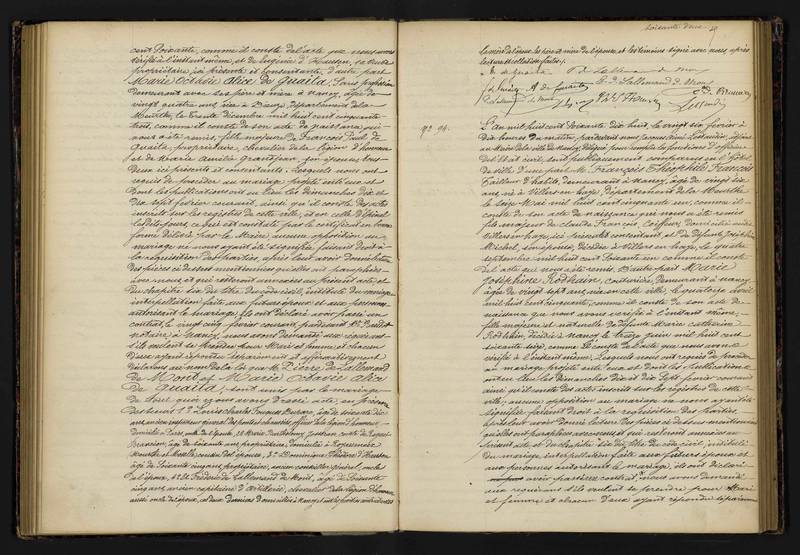 cent soixante, comme il conste de l'acte que nous avons
vérifié à l'instant même, et de Eugénie d'Hausen, sa veuve
propriétaire, ici présente et consentante, d'autre part
Marie Octavie Alice de Guaita, sans profession
demeurant avec ses père et mère à Nancy, âgée de
vingt quatre ans, née à département de la
Meurthe, le trente décembre mil huit cent cinquante
trois, comme il conste de son acte de naissance qui
nous a été remis, fille majeure de François Paul de
Guaita, propriétaire, chevalier de la légion d'honneur
et de Marie Amélie Grandjean, son épouse, tous
deux ici présents et consentants, Lesquels nous ont
requis de procéder au mariage projeté entre eux et
dont les publications ont eu lieu les dimanches dix et
dix sept février courant, ainsi qu'il conste des actes
inscrits sur les registres de cette ville, et en celle d'Épinal
les dits jours, ce qui est constaté par le certificat en bonne
forme délivré par le Maire, aucune opposition au
mariage ne nous ayant été signifiée, faisant droit à
la réquisition des parties, après leur avoir donné lecture
des pièces ci dessus mentionnées qu'elles ont paraphées
avec nous, et qui resteront annexées au présent acte et
du chapitre six du titre du code civil, intitulé du mariage
interpellation faite aux futurs époux et aux personnes
autorisant le mariage, ils ont déclaré avoir passé un
contrat, le vingt cinq février courant pardevant Me
notaire à Nancy, nous avons demandé aux requérants
s'ils veulent se prendre pour Mari et femme, et chacun
d'eux ayant répondu séparément et affirmativement
déclarons au nom de la loi que M. Pierre de Lallemand
de Mont et Marie Octavie Alice
de Guaita sont unis par le mariage
de tout quoi nous avons dressé acte en présence
des sieurs 1° Louis Charles Dusart, âgé de soixante dix
ans, ancien ingénieur général des ponts et chaussées, officier de la légion d'honneur,
domicilié à Paris, oncle de l'épouse, 2°
âgé de soixante ans, propriétaire, domicilié à
Meurthe et Moselle, cousin de l'épouse, 3° Dominique Théodore d'Hausen
âgé de soixante cinq ans, propriétaire, ancien conseiller général, oncle
de l'époux, 4° et Frédéric de Lallemand de Mont, âgé de soixante
cinq ans, ancien capitaine d'artillerie, chevalier de la légion d'honneur
aussi oncle de l'époux, ces deux derniers domiciliés à Nancy
soixante deux 29
la mère de l'époux, les père et mère de l'épouse, et les témoins signé avec nous, après
lecture et collation faites.
A. de Guaita P. de Lallemand de Mont
A. de Guaita de Lallemand de Mont
N° 94.
L'an mil huit cent soixante dix huit, le vingt six février à
dix heures du matin, pardevant nous adjoint
au Maire de la ville de Nancy, délégué pour remplir les fonctions d'officier
de l'état civil, sont publiquement comparus en l'hôtel
de ville d'une part M. François Théophile François
tailleur d'habits, demeurant à Nancy, âgé de vingt six
ans, né à Villers en haye, département de la Meurthe
le seize Mai mil huit cent cinquante un, comme il
conste de son acte de naissance qui nous a été remis
fils majeur de Claude François, coiffeur, domicilié audit
Villers en haye, ici présent et consentant et de défunte Joséphine
Michel, son épouse, décédée à Villers en haye, le quatre
septembre mil huit cent soixante un comme il conste
de l'acte qui nous a été remis, D'autre part Marie
Joséphine Rodhain, couturière, demeurant à Nancy
âgée de vingt sept ans, née en cette ville, le quatorze avril
mil huit cent cinquante, comme il conste de son acte de
naissance que nous avons vérifié à l'instant même,
fille majeure et naturelle de défunte Marie Catherine
Rodhain, décédée à Nancy le treize juin mil huit cent
soixante seize, comme il conste de l'acte que nous avons
vérifié à l'instant même, Lesquels nous ont requis de procéder
au mariage projeté entre eux et dont les publications
ont eu lieu les dimanches dix et dix sept février courant
ainsi qu'il conste des actes inscrits sur les registres de cette
ville, aucune opposition au mariage ne nous ayant été
signifiée, faisant droit à la réquisition des parties,
après leur avoir donné lecture des pièces ci dessus mentionnées
qu'elles ont paraphées avec nous, et qui resteront annexées au
présent acte, et du chapitre six du titre du code civil, intitulé
du mariage, interpellation faite aux futurs époux et
aux personnes autorisant le mariage, ils ont déclaré
avoir passé contrat, nous avons demandé
aux requérants s'ils veulent se prendre pour Mari
et femme, et chacun d'eux ayant répondu séparément